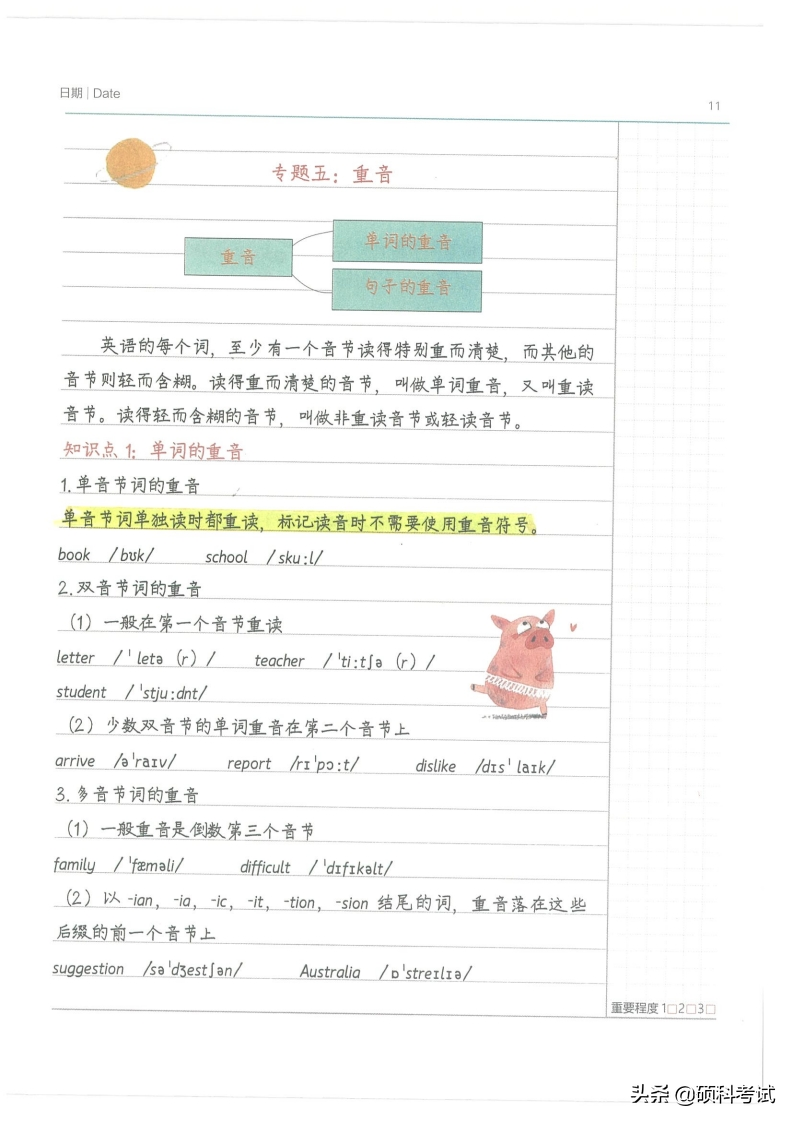 日期 | Date
11
专题五：重音
重音
单词的重音
句子的重音
英语的每个词，至少有一个音节读得特别重而清楚，而其他的
音节则轻而含糊。读得重而清楚的音节，叫做单词重音，又叫重读
音节。读得轻而含糊的音节，叫做非重读音节或轻读音节。
知识点1：单词的重音
1.单音节词的重音
单音节词单独读时都重读，标记读音时不需要使用重音符号。
book /bʊk/ school /sku:l/
2.双音节词的重音
（1）一般在第一个音节重读
letter /ˈletə（r）/ teacher /ˈti:tʃə（r）/
student /ˈstju:dnt/
（2）少数双音节的单词重音在第二个音节上
arrive /əˈraɪv/ report /rɪˈpɔ:t/ dislike /dɪsˈlaɪk/
3.多音节词的重音
（1）一般重音是倒数第三个音节
family /ˈfæməli/ difficult /ˈdɪfɪkəlt/
（2）以 -ian，-ia，-ic，-it，-tion，-sion 结尾的词，重音落在这些
后缀的前一个音节上
suggestion /səˈdʒestʃən/ Australia /ɒˈstreɪlɪə/
重要程度 1□2□3□
头条 @硕科考试